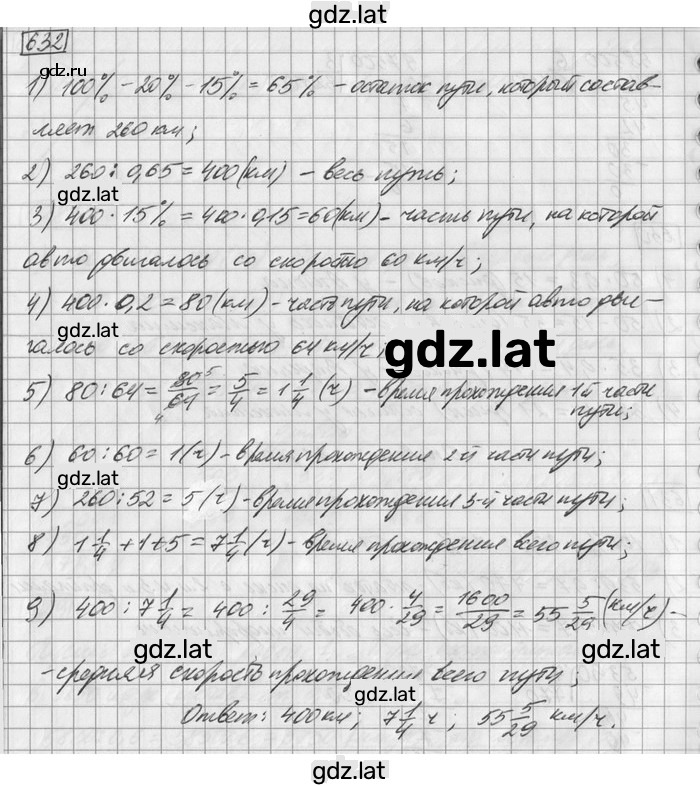 gdz.lat
632
gdz.lat
1) 100% - 20% - 15% = 65% - остаток пути, который состав-
ляет 260 км;
2) 260 : 0,65 = 400 (км) - весь путь;
gdz.lat
3) 400 · 15% = 400 · 0,15 = 60 (км) - часть пути, на которой
авто двигалось со скоростю 60 км/ч;
4) 400 · 0,2 = 80 (км) - часть пути, на которой авто дви-
gdz.lat
галось со скоростью 64 км/ч;
gdz.lat
5) 80 : 64 = 80/64 = 5/4 = 1 1/4 (ч) - время прохождения 1й части
пути;
6) 60 : 60 = 1 (ч) - время прохождение 2-й части пути;
gdz.lat
7) 260 : 52 = 5 (ч) - время прохождения 3-й части пути;
8) 1 1/4 + 1 + 5 = 7 1/4 (ч) - время прохождения всего пути;
gdz.lat
9) 400 : 7 1/4 = 400 : 29/4 = 400 · 4/29 = 1600/29 = 55 5/29 (км/ч) -
- средняя скорость прохождения всего пути;
gdz.lat
Ответ: 400 км; 7 1/4 ч; 55 5/29 км/ч.
gdz.lat